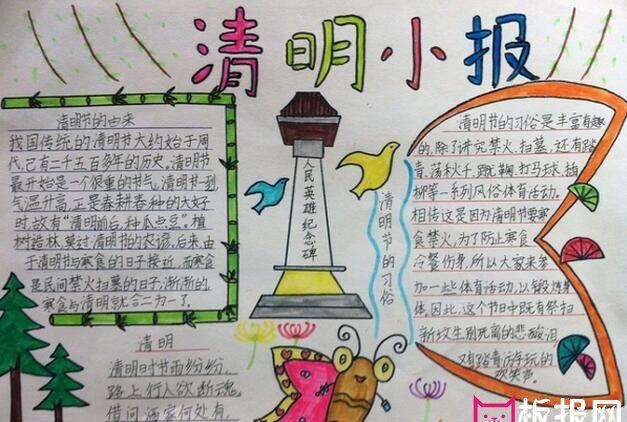 清明小报
清明节的由来
我国传统的清明节大约始于周
代,已有二千五百多年的历史。清明节
最开始是一个很重的节气,清明节一到,
气温升高,正是春耕春种的大好
时,故有“清明前后,种瓜点豆”。植
树造林,莫过清明节的农谚。后来,由
于清明节与寒食的日子接近,而寒食
是民间禁火扫墓的日子,渐渐的,
寒食与清明就合二为一了.
清明
清明时节雨纷纷,
路上行人欲断魂,
借问酒家何处有,
人民英雄纪念碑
清明节的习俗
清明节的习俗是丰富有趣
的,除了讲究禁火、扫墓,还有踏
青、荡秋千、蹴鞠、打马球、插
柳等一系列风俗体育活动。
相传这是因为清明节要寒
食禁火,为了防止寒食
冷餐伤身,所以大家来参
加一些体育活动,以锻炼身
体。因此,这个节日中既有祭扫
新坟生别死离的悲酸泪
又有踏青游玩的
欢笑声。
板报网